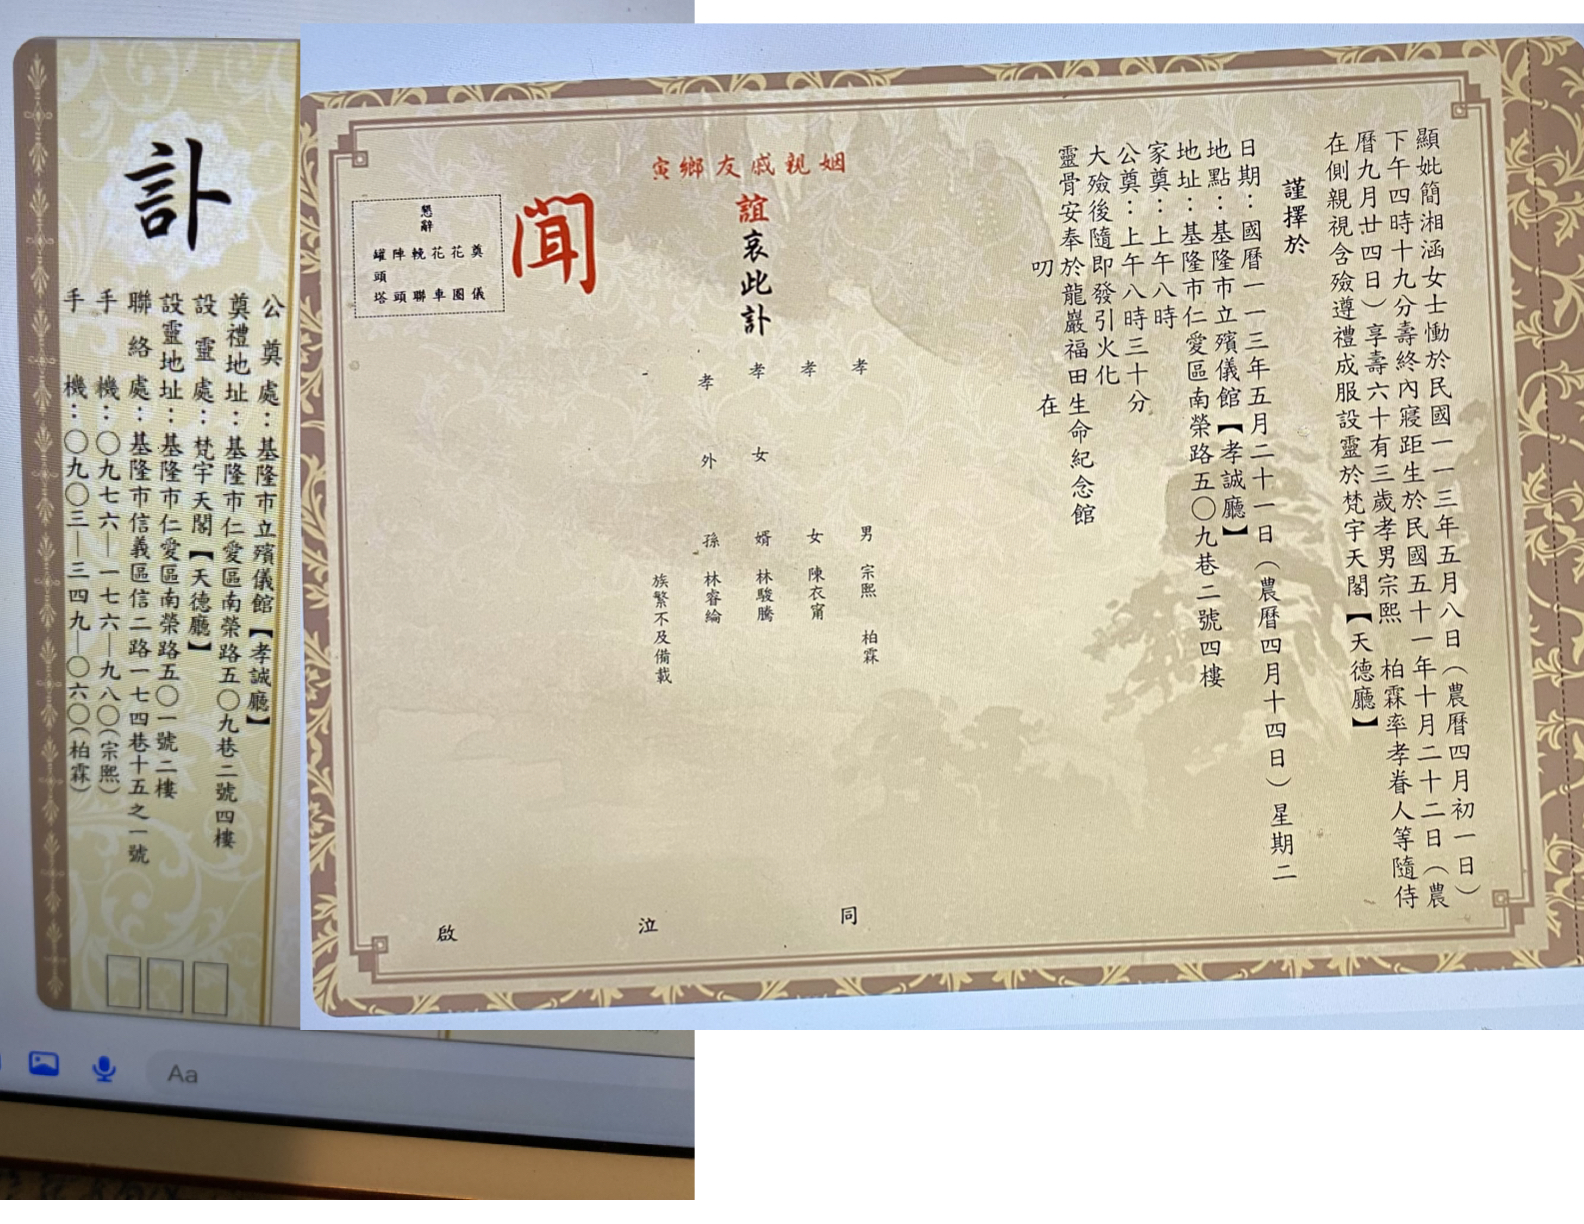 顯妣簡湘涵女士慟於民國一一三年五月八日（農曆四月初一日）
下午四時十九分壽終內寢距生於民國五十一年十月二十二日（農
曆九月廿四日）享壽六十有三歲孝男宗熙 柏霖率孝眷人等隨侍
在側親視含殮遵禮成服設靈於梵宇天閣【天德廳】
謹擇於
日期：國曆一一三年五月二十一日（農曆四月十四日）星期二
地點：基隆市立殯儀館【孝誠廳】
地址：基隆市仁愛區南榮路五〇九巷二號四樓
家奠：上午八時
公奠：上午八時三十分
大殮後隨即發引火化
靈骨安奉於龍巖福田生命紀念館
叨 在
姻親戚友鄉寅
誼哀此訃
聞
孝 男 宗熙 柏霖
孝 女 陳衣甯
孝 女 婿 林駿騰
孝 外 孫 林睿綸
族繁不及備載
同 泣 啟
懇辭
奠儀
花圈
花車
輓聯
陣頭
罐頭塔
訃
公奠處：基隆市立殯儀館【孝誠廳】
奠禮地址：基隆市仁愛區南榮路五〇九巷二號四樓
設靈處：梵宇天閣【天德廳】
設靈地址：基隆市仁愛區南榮路五〇一號二樓
聯絡處：基隆市信義區信二路一七四巷十五之一號
手機：〇九七六—一七六—九八〇（宗熙）
手機：〇九〇三—三四九—〇六〇（柏霖）
Aa